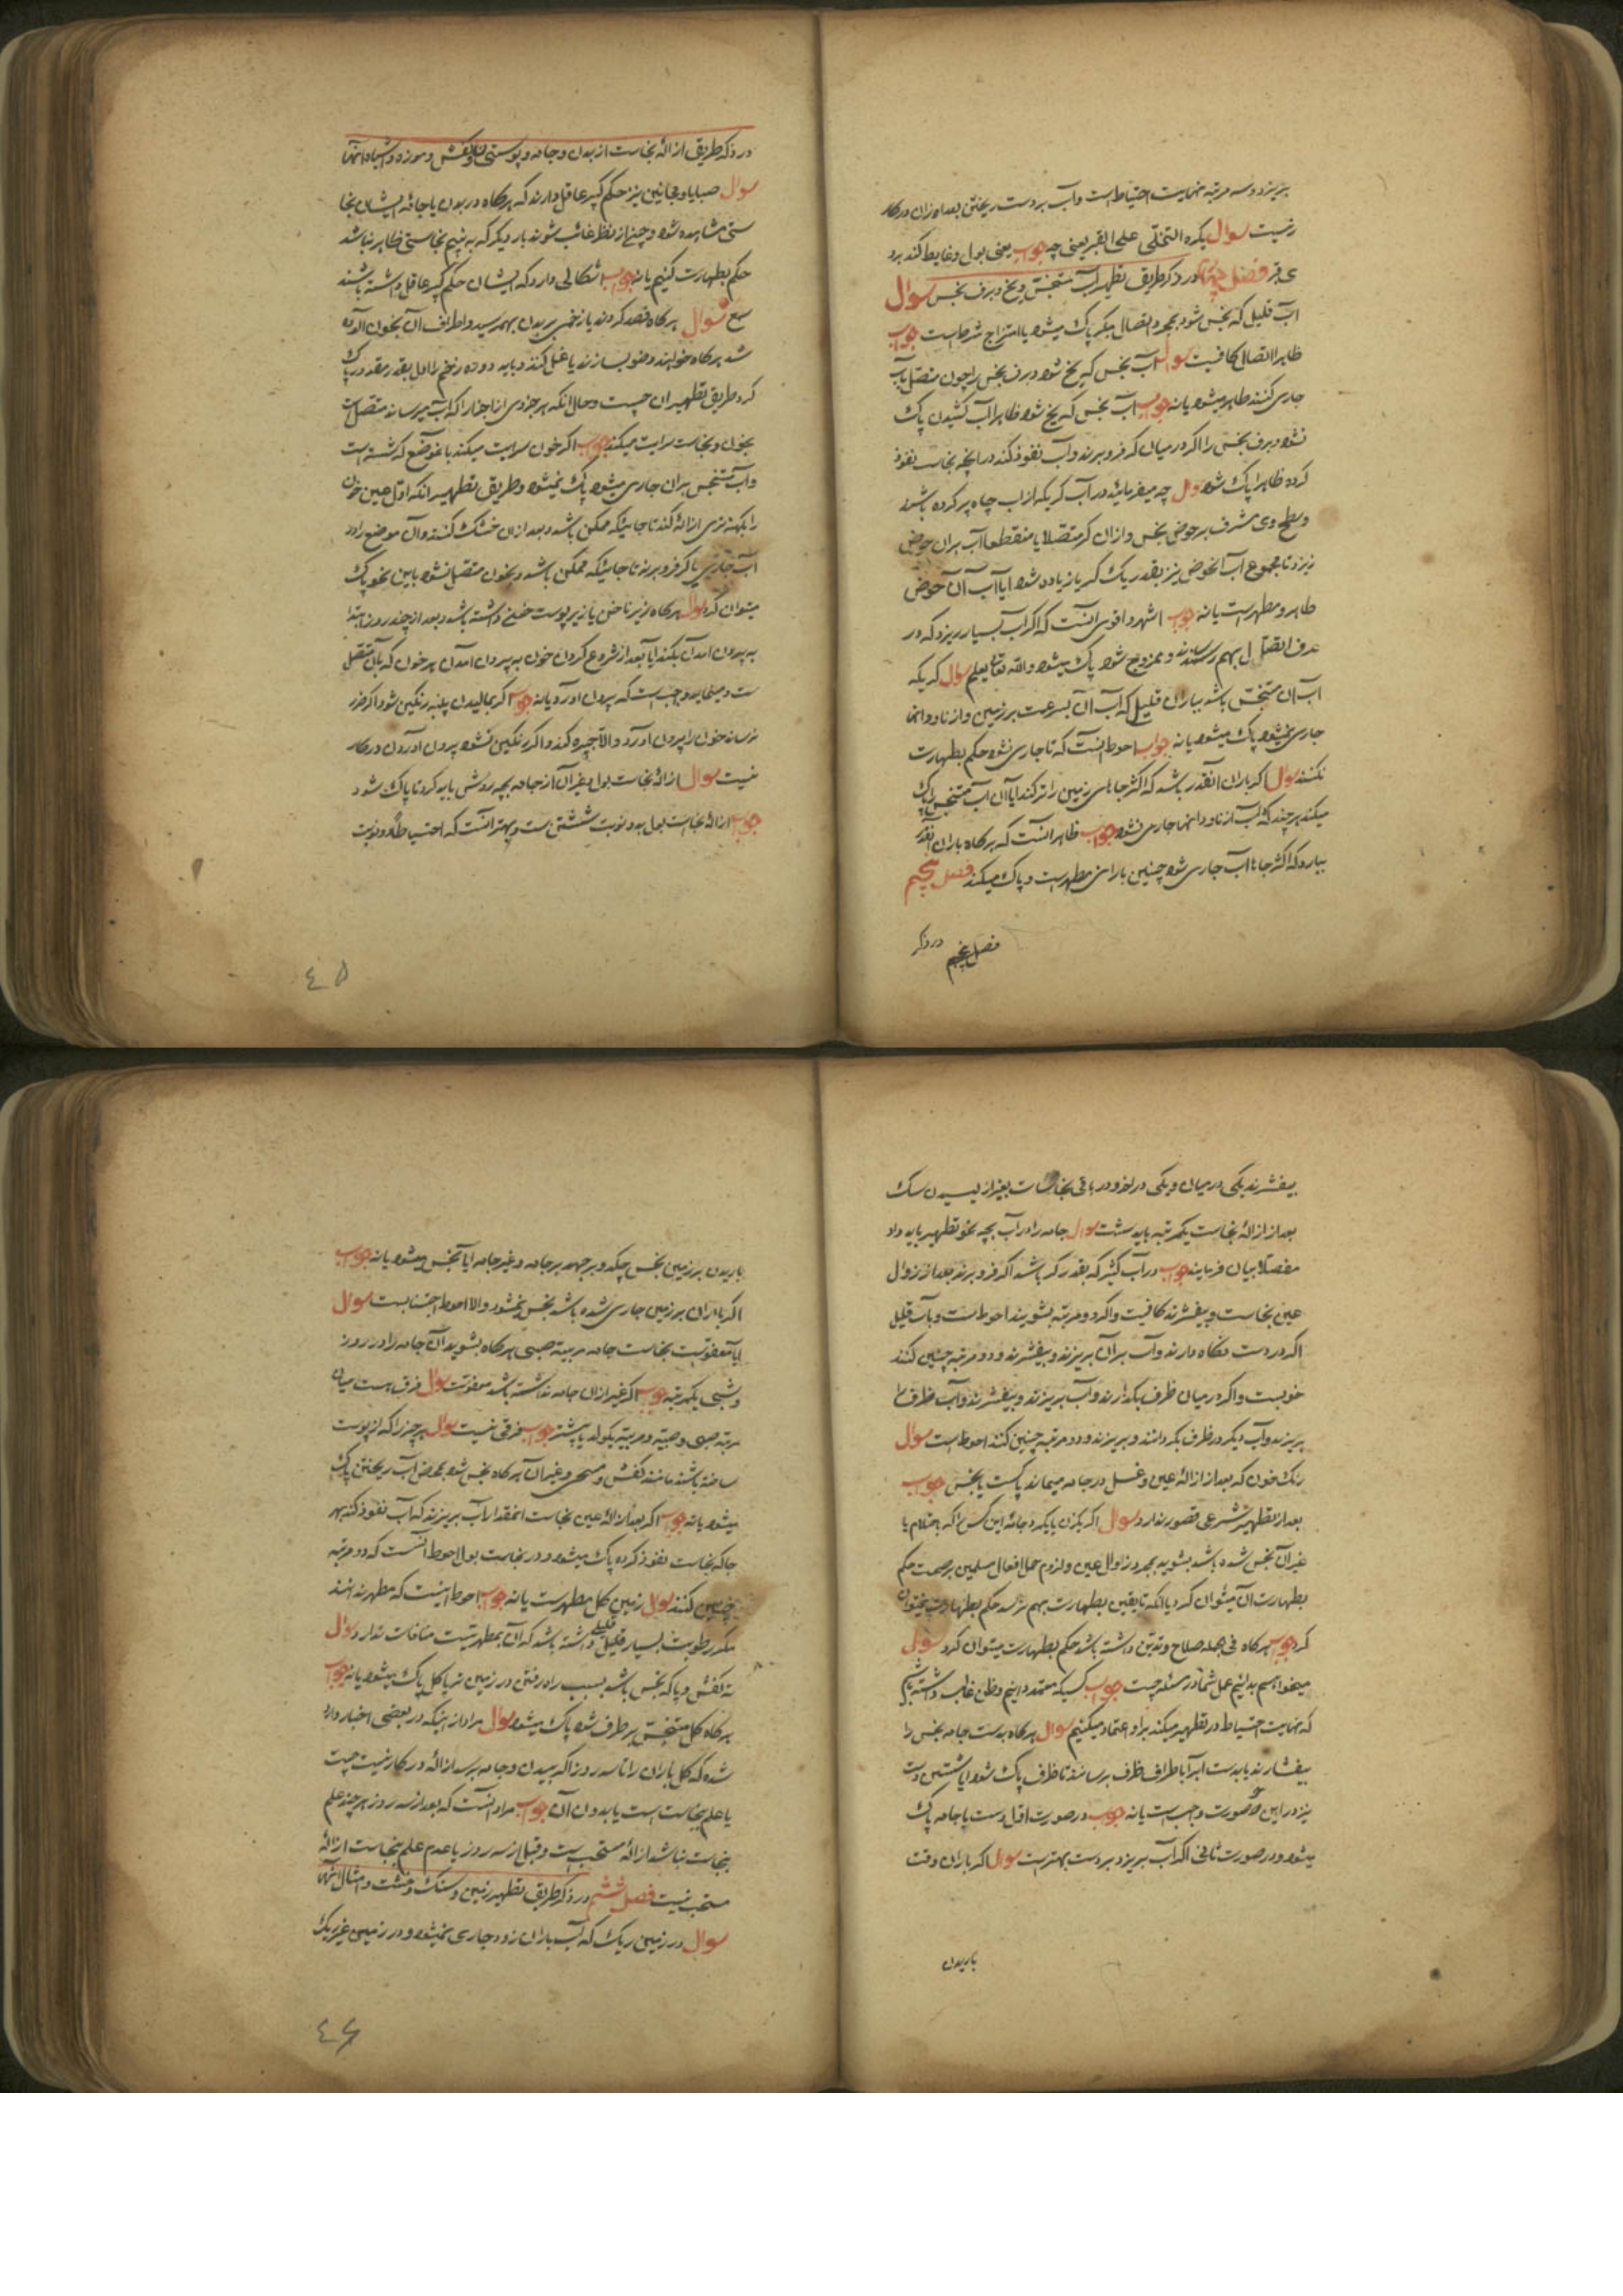 بریزد و سه مرتبه نهایت احتیاط است و آب بر دست ریختن بعد از ان در کار
نیست سوال یکره التخلی علی القبر یعنی چه جواب یعنی بول و غایط کند بر
ی قبر فصل چهارم در ذکر طریق تطهیر آب متنجس و یخ و برف نجس سوال
آب قلیل که نجس شود بمجرد اتصال بکر پاک میشود یا امتزاج شرطست جواب
ظاهرا اتصال کافیست سوال آب نجس که یخ شود و برف نجس را چون متصل بآب
جاری کنند طاهر میشود یا نه جواب آب نجس که یخ شود ظاهرا آب کشیدن پاک
نشود و برف نجس را اگر در میان کر فرو برند و آب نفوذ کند در آنچه نجاست نفوذ
کرده ظاهرا پاک شود سوال چه میفرمایند در آب کر که از آب چاه پر کرده باشند
و سطح وی مشرف بر حوض نجس و از ان کر متصلا یا منقطعا آب بر ان حوض
ریزد تا مجموع آب آنحوض نیز بقدر یک کر یا زیاده شود ایا آب آن حوض
طاهر و مطهر است یا نه جواب اشهر و اقوی آنست که اگر آب بسیار ریزد که در
عرف اتصال بهم رسانند و ممزوج شود پاک میشود والله تعالی یعلم سوال کر که
آب آن متنجس باشد بباران قلیل که آب آن بسرعت بر زمین و از ناودانها
جاری نمیشود پاک میشود یا نه جواب احوط آنست که تا جاری نشود حکم بطهارت
نکنند سوال اگر باران آنقدر باشد که اکثر جاهای زمین را تر کند آیا آن آب متنجس را پاک
میکند هر چند که آب از ناودانها جاری نشود جواب ظاهر آنست که هر گاه باران آنقدر
ببارد که اکثر جاها آب جاری شود چنین بارانی مطهر است و پاک میکند فصل پنجم
فصل پنجم در ذکر
در ذکر طریق ازاله نجاست از بدن و جامه و پوستین و کفش و موزه و اشباه آنها
سوال صبایا و مجانین نیز حکم کبیر عاقل دارند که هر گاه در بدن یا جامه ایشان نجا
ستی مشاهده شود و چنانچه از نظر غائب شوند بار دیگر که به بینیم نجاستی ظاهر نباشد
حکم بطهارت کنیم یا نه جواب اشکالی دارد که ایشان حکم کبیر عاقل داشته باشند
سوال هر گاه فصد کردند یا زخمی بر بدن بهم رسید و اطراف آن بخون آلوده
شد هر گاه خواهند وضو بسازند یا غسل کنند و باید دوده زخم را اول بقدر مقدور پاک
کرد طریق تطهیر ان چیست و حال انکه هر جزوی از اجزا را که آب میرساند متصلست
بخون و نجاست سرایت میکند جواب اگر خون سرایت میکند بآنموضع که شسته است
و آب متنجس بر ان جاری میشود پاک نمیشود و طریق تطهیر انکه اول عین خون
را بکهنه تری ازاله کند تا جائیکه ممکن باشد و بعد از ان خشک کنند و ان موضع را در
آب جاری یا کر فرو برند تا جائیکه ممکن باشد و بخون متصل نشود باین نحو پاک
میتوان کرد سوال هر گاه زیر ناخن یا زیر پوست خونی داشته باشد و بعد از چند روز ابتدا
به بیرون آمدن بکند آیا بعد از شروع کردن خون به بیرون آمدن هر خون که بآن متصل
ست و مینماید واجب است که بیرون آورد یا نه جواب اگر بمالیدن پنبه رنگین شود و اگر ضرر
نرساند خون را بیرون آورد و الا جبیره کند و اگر رنگین نشود بیرون آوردن در کار
نیست سوال ازاله نجاست بول و غیر آن از جامه بچه روش باید کرد تا پاک شود
جواب ازاله نجاست بول بدو نوبت شستن است و بهتر آنست که احتیاطا دو نوبت
٤٥
بیفشرند یکی در میان و یکی در آخر و در باقی نجاسات بغیر از لیسیدن سگ
بعد از ازاله نجاست یکمرتبه باید شست سوال جامه را در آب بچه نحو تطهیر باید داد
مفصلا بیان فرمایند جواب در آب کثیر که بقدر کر باشد اگر فرو برند بعد از زوال
عین نجاست و بیفشرند کافیست و اگر دو مرتبه بشویند احوط است و بآب قلیل
اگر در دست نگاه دارند و آب بر آن بریزند و بیفشرند و دو مرتبه چنین کنند
خوبست و اگر در میان ظرف بگذارند و آب بریزند و بیفشرند و آب ظرف را
بریزند و آب دیگر در ظرف بگردانند و بریزند و دو مرتبه چنین کنند احوط است سوال
رنگ خون که بعد از ازاله عین و غسل در جامه میماند پاکست یا نجس جواب
بعد از تطهیر شرعی قصور ندارد سوال اگر یکزن یا یکمرد جامه این کس را که باحتلام یا
غیر آن نجس شده باشد بشوید بمجرد زوال عین و لزوم حمل افعال مسلمین بر صحت حکم
بطهارت آن میتوان کرد یا انکه تا یقین بطهارت بهم نرسد حکم بطهارت نمیتوان
کرد جواب هر گاه فی الجمله صلاح و تدین داشته باشد حکم بطهارت میتوان کرد سوال
میخواهیم بدانیم عمل شما در مسئله چیست جواب کسیکه معتمد دانیم و ظن غالب داشته باشیم
که نهایت احتیاط در تطهیر میکند بر او اعتماد میکنیم سوال هر گاه بدست جامه نجس را
بیفشارند یا بدست آب را باطراف ظرف برسانند تا ظرف پاک شود ایا شستن دست
نیز در این دو صورت واجب است یا نه جواب در صورت اول دست با جامه پاک
میشود و در صورت ثانی اگر آب بریزد بر دست بهتر است سوال اگر باران وقت
باریدن
باریدن بر زمین نجس چکد و بر جهد بر جامه و غیر جامه آیا نجس میشود یا نه جواب
اگر باران بر زمین جاری شده باشد نجس نمیشود والا احوط اجتنابست سوال
آیا معفوست نجاست جامه مربیه صبی هر گاه بشوید آن جامه را در روز
و شبی یکمرتبه جواب اگر غیر از ان جامه نداشته باشد معفوست سوال فرق هست میان
مربیه صبی و صبیه و مربیه یکولد یا بیشتر جواب فرقی نیست سوال هر چیز را که از پوست
ساخته باشند مانند کفش و مسحی و غیر آن هر گاه نجس شود بمحض آب ریختن پاک
میشود یا نه جواب اگر بعد از ازاله عین نجاست آنمقدار آب بریزند که آب نفوذ کند بهر
جا که نجاست نفوذ کرده پاک میشود و در نجاست بول احوط آنست که دو مرتبه
چنین کنند سوال زمین گل مطهرست یا نه جواب احوط اینست که مطهر ندانند
مگر رطوبت بسیار قلیلی داشته باشد که آن بمطهریت منافات ندارد سوال
ته کفش و پا که نجس باشد بسبب راه رفتن در زمین تر یا گل پاک میشود یا نه جواب
هر گاه گل متنجس بر طرف شود پاک میشود سوال مراد از اینکه در بعضی اخبار وارد
شده که گل باران را تا سه روز اگر ببدن و جامه برسد ازاله در کار نیست چیست
با علم بنجاست است یا بدون آن جواب مراد آنست که بعد از سه روز هر چند علم
بنجاست نباشد ازاله مستحب است و قبل از سه روز با عدم علم بنجاست ازاله
مستحب نیست فصل ششم در ذکر طریق تطهیر زمین و سنگ و خشت و امثال آنها
سوال در زمین ریگ که آب باران زود جاری نمیشود و در زمین غیر ریگ
٤٦